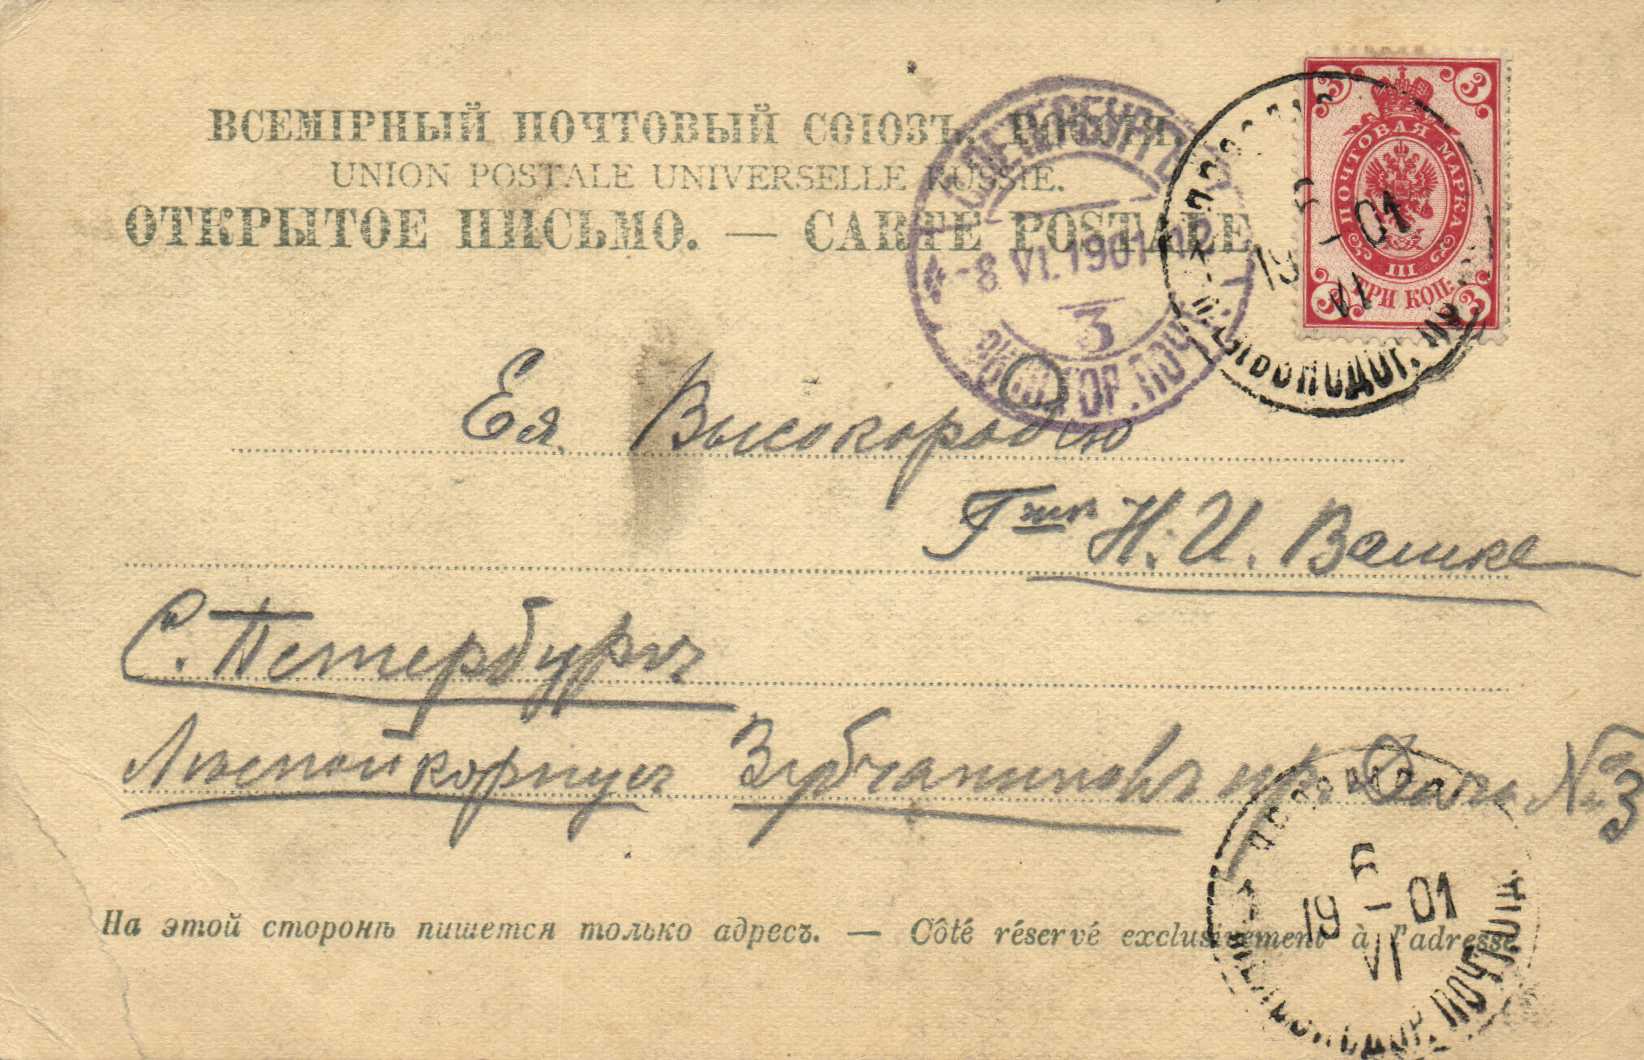 ВСЕМІРНЫЙ ПОЧТОВЫЙ СОЮЗЪ. РОССІЯ.
UNION POSTALE UNIVERSELLE RUSSIE.
ОТКРЫТОЕ ПИСЬМО. — CARTE POSTALE
3 3
ПОЧТОВАЯ МАРКА
III
ТРИ КОП.
3 3
С.ПЕТЕРБУРГЪ
8 VI.1901
3
ГОР. ПОЧТ.
6
19 – 01
VI
Ея Высокородію
Гжѣ Н. И. Вашке
С. Петербургъ
Лѣсной корпусъ Зубчаниновъ пр. Дача № 3
6
19 – 01
VI
На этой сторонѣ пишется только адресъ. — Côté réservé exclusivement à l'adresse